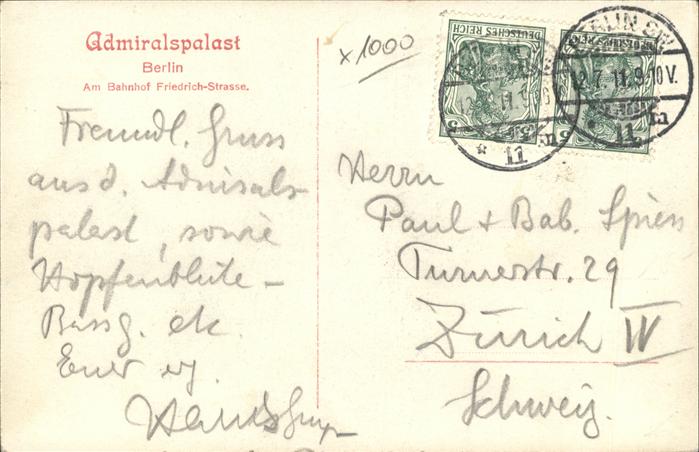 Admiralspalast
Berlin
Am Bahnhof Friedrich-Strasse.
Freundl. Gruss
aus d. Admirals
palast, sowie
Hopfenblüte -
etc.
Euer
x1000
DEUTSCHES REICH
DEUTSCHES REICH
5
5
BERLIN SW
12.7.11.9-10V.
* 11 n
* 11 n
Herrn
Paul + Bab. Spiess
Turnerstr. 29
Zürich IV
Schweiz.